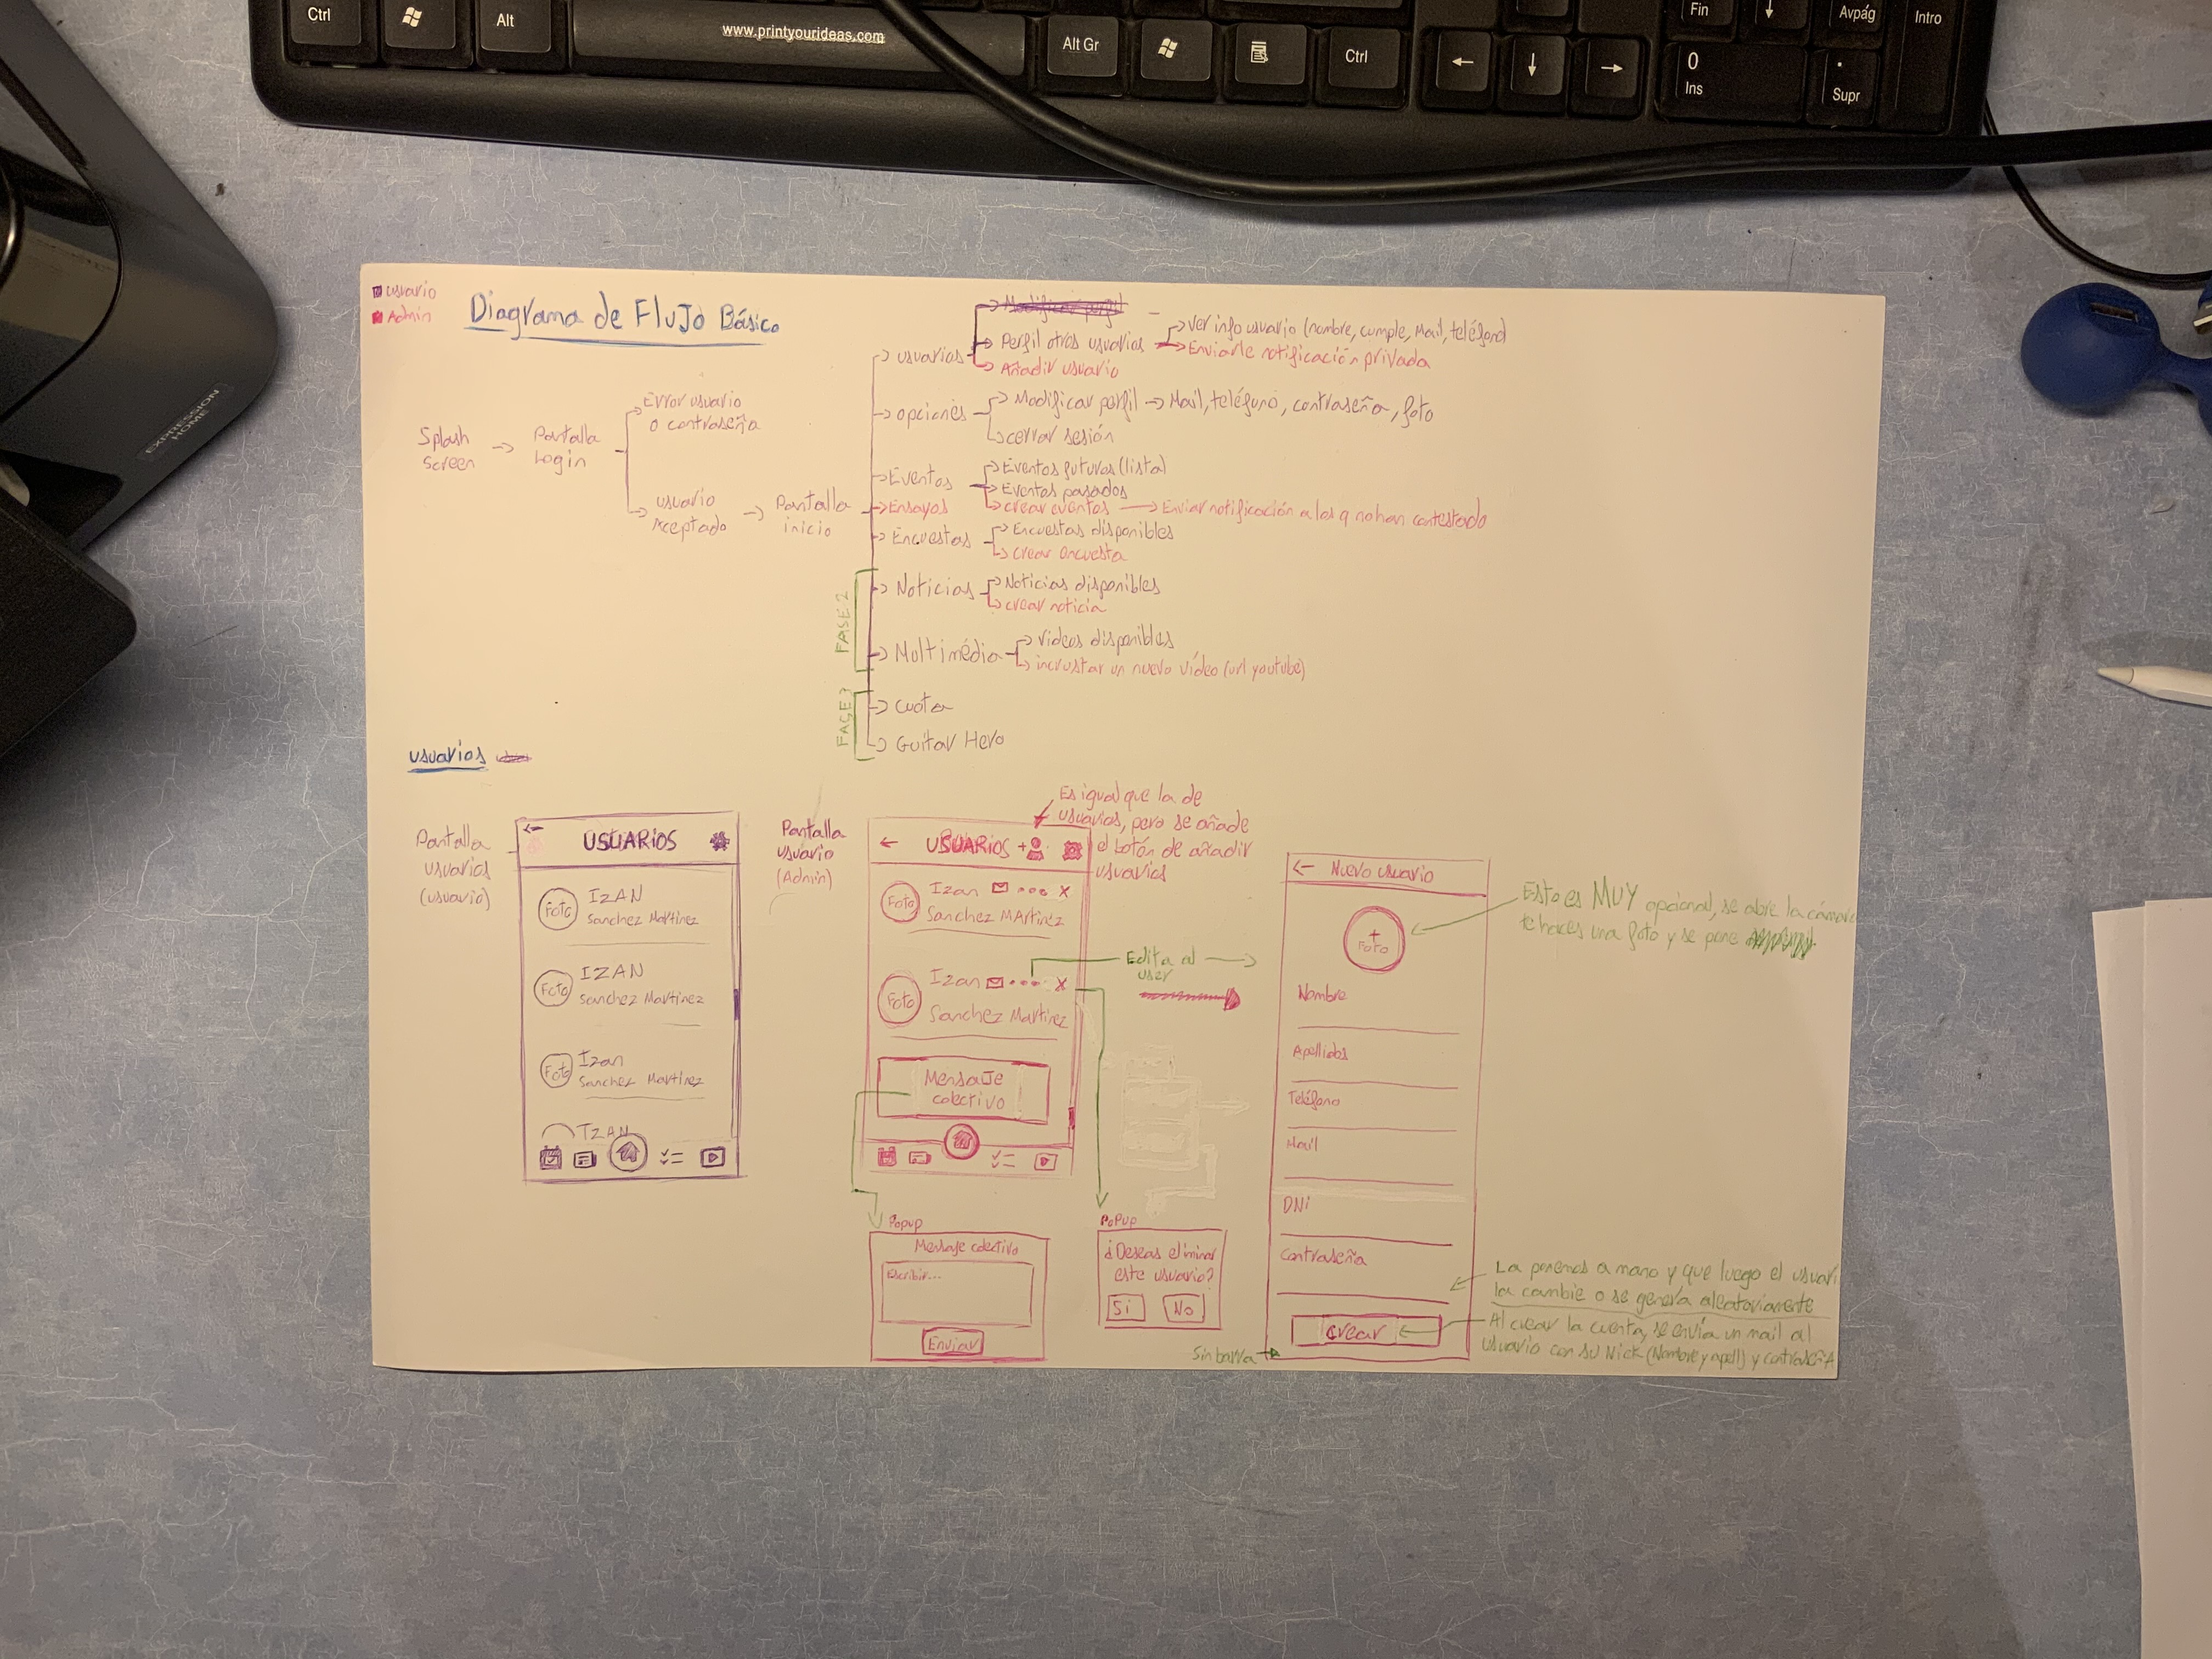 Ctrl
Alt
www.printyourideas.com
Alt Gr
Ctrl
Fin
Avpág
Intro
0
Ins
.
Supr
EXPRESSION
HOME
usuario
Admin
Diagrama de FluJo Básico
Splash
screen
Pantalla
Login
Error usuario
o contraseña
usuario
Aceptado
Pantalla
inicio
usuarios
Modificar perfil
Perfil otros usuarios
Ver info usuario (nombre, cumple, Mail, teléfono)
Enviarle notificación privada
Añadir usuario
opciones
Modificar perfil
Mail, teléfono, contraseña, foto
cerrar sesión
Eventos
Eventos futuros (lista)
Eventos pasados
crear eventos
Enviar notificación a los q no han contestado
Ensayos
Encuestas
Encuestas disponibles
crear encuesta
FASE 2
Noticias
Noticias disponibles
crear noticia
Moltimédia
videos disponibles
incrustar un nuevo vídeo (url youtube)
FASE 3
cuota
Guitar Hero
usuarios
Pantalla
usuarios
(usuario)
USUARIOS
Foto
IZAN
Sanchez Martinez
Foto
IZAN
Sanchez Martinez
Foto
Izan
Sanchez Martinez
IZAN
Pantalla
usuario
(Admin)
Es igual que la de
usuarios, pero se añade
el botón de añadir
usuarios
USUARIOS +
Foto
Izan
Sanchez MArtinez
Foto
Izan
Sanchez Martinez
Mensaje
colectivo
Edita al
user
Popup
Mensaje colectivo
Escribir...
Enviar
PoPup
¿Deseas eliminar
este usuario?
Si
No
Nuevo usuario
+
Foto
Nombre
Apellidos
Teléfono
Mail
DNi
Contraseña
crear
Sin barra
Esto es MUY opcional, se abre la cámara
te haces una foto y se pone
La ponemos a mano y que luego el usuari
la cambie o se genera aleatoriamente
Al crear la cuenta, se envía un mail al
usuario con su Nick (Nombre y apell) y contraseñA